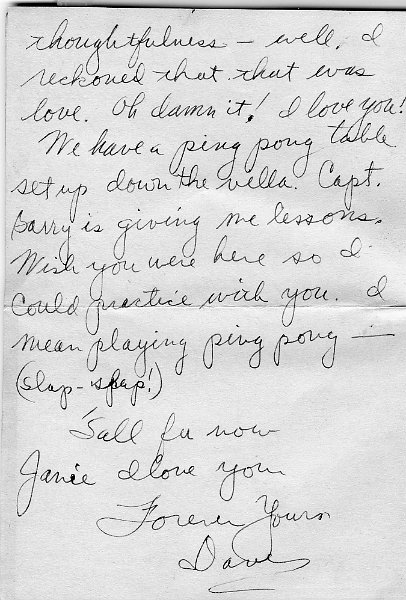 thoughtfulness — well, I
reckoned that that was
love. Oh damn it! I love you!
We have a ping pong table
set up down the villa. Capt.
Barry is giving me lessons.
Wish you were here so I
could practice with you. I
mean playing ping pong —
(slap-slap!)
'Sall fu now
Janie I love you
Forever Yours
Dave